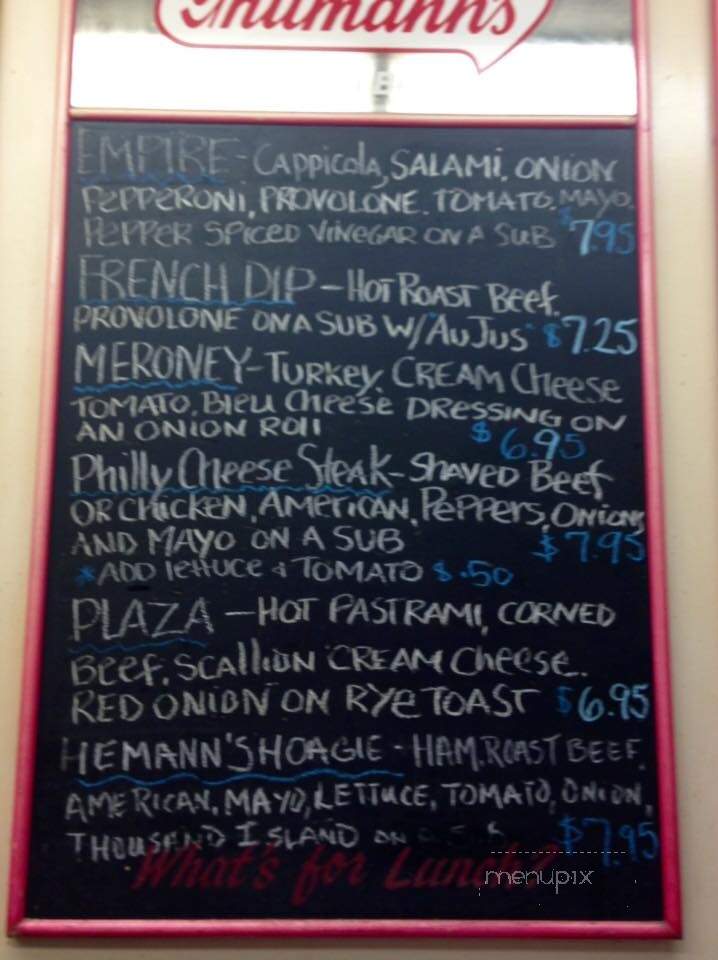 Thumann's
EMPIRE - Cappicola, SALAMI, ONION
PEPPERONI, PROVOLONE, TOMATO, MAYO,
PEPPER SPICED VINEGAR ON A SUB $7.95
FRENCH DIP - HOT ROAST Beef,
PROVOLONE ON A SUB W/ "AU JUS" $7.25
MERONEY - Turkey, CREAM Cheese
TOMATO, Bleu Cheese DRESSING ON
AN ONION Roll $6.95
Philly Cheese Steak - Shaved Beef
OR CHICKEN, AMERICAN, PePPers, ONIONS
AND MAYO ON A SUB $7.95
*ADD lettuce & TOMATO $.50
PLAZA - HOT PASTRAMI, CORNED
Beef, SCALLION CREAM Cheese,
RED ONION ON RYe TOAST $6.95
HEMANN'S HOAGIE - HAM, ROAST BEEF,
AMERICAN, MAYO, LETTUCE, TOMATO, ONION,
THOUSAND ISLAND ON A SUB $7.95
What's for Lunch?
menupix